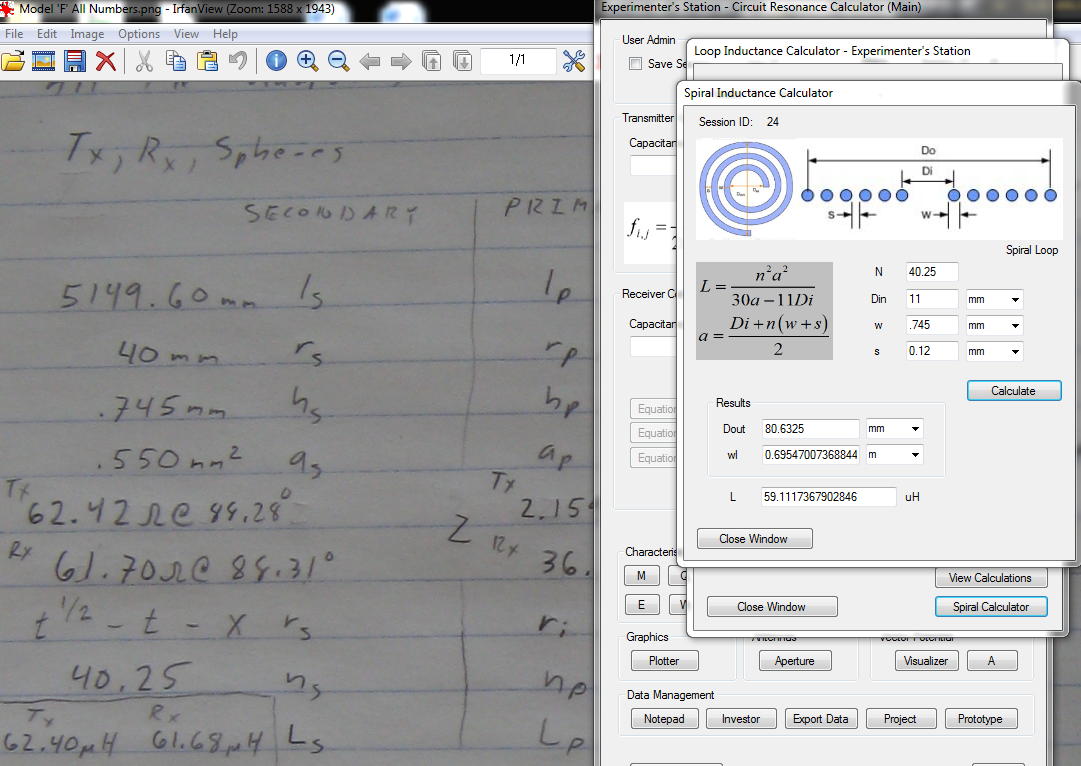 Model 'F' All Numbers.png - IrfanView (Zoom: 1588 x 1943)
File Edit Image Options View Help
1/1
Tx, Rx, Spheres
SECONDARY PRIM
5149.60 mm ls lp
40 mm rs rp
.745 mm hs hp
.550 mm² as ap
Tx 62.42 Ω @ Tx 2.15
Z
Rx 61.70 Ω @ Rx 36.
t 1/2 - t - x rs ri
40.25 ns np
Tx Rx
62.40 μH 61.68 μH Ls Lp
Experimenter's Station - Circuit Resonance Calculator (Main)
User Admin
Save Se
Transmitter
Capacitan
fi,j =
Receiver Co
Capacitan
Equation
Equation
Equation
Characteris
M
E
Graphics
Plotter
Antennas
Aperture
Vector Potential
Visualizer A
Data Management
Notepad Investor Export Data Project Prototype
Loop Inductance Calculator - Experimenter's Station
View Calculations
Close Window Spiral Calculator
Spiral Inductance Calculator
Session ID: 24
Do
Di
s w
Spiral Loop
L = n²a² / 30a − 11Di
a = Di + n(w + s) / 2
N 40.25
Din 11 mm
w .745 mm
s 0.12 mm
Calculate
Results
Dout 80.6325 mm
wl 0.69547007368844 m
L 59.1117367902846 uH
Close Window